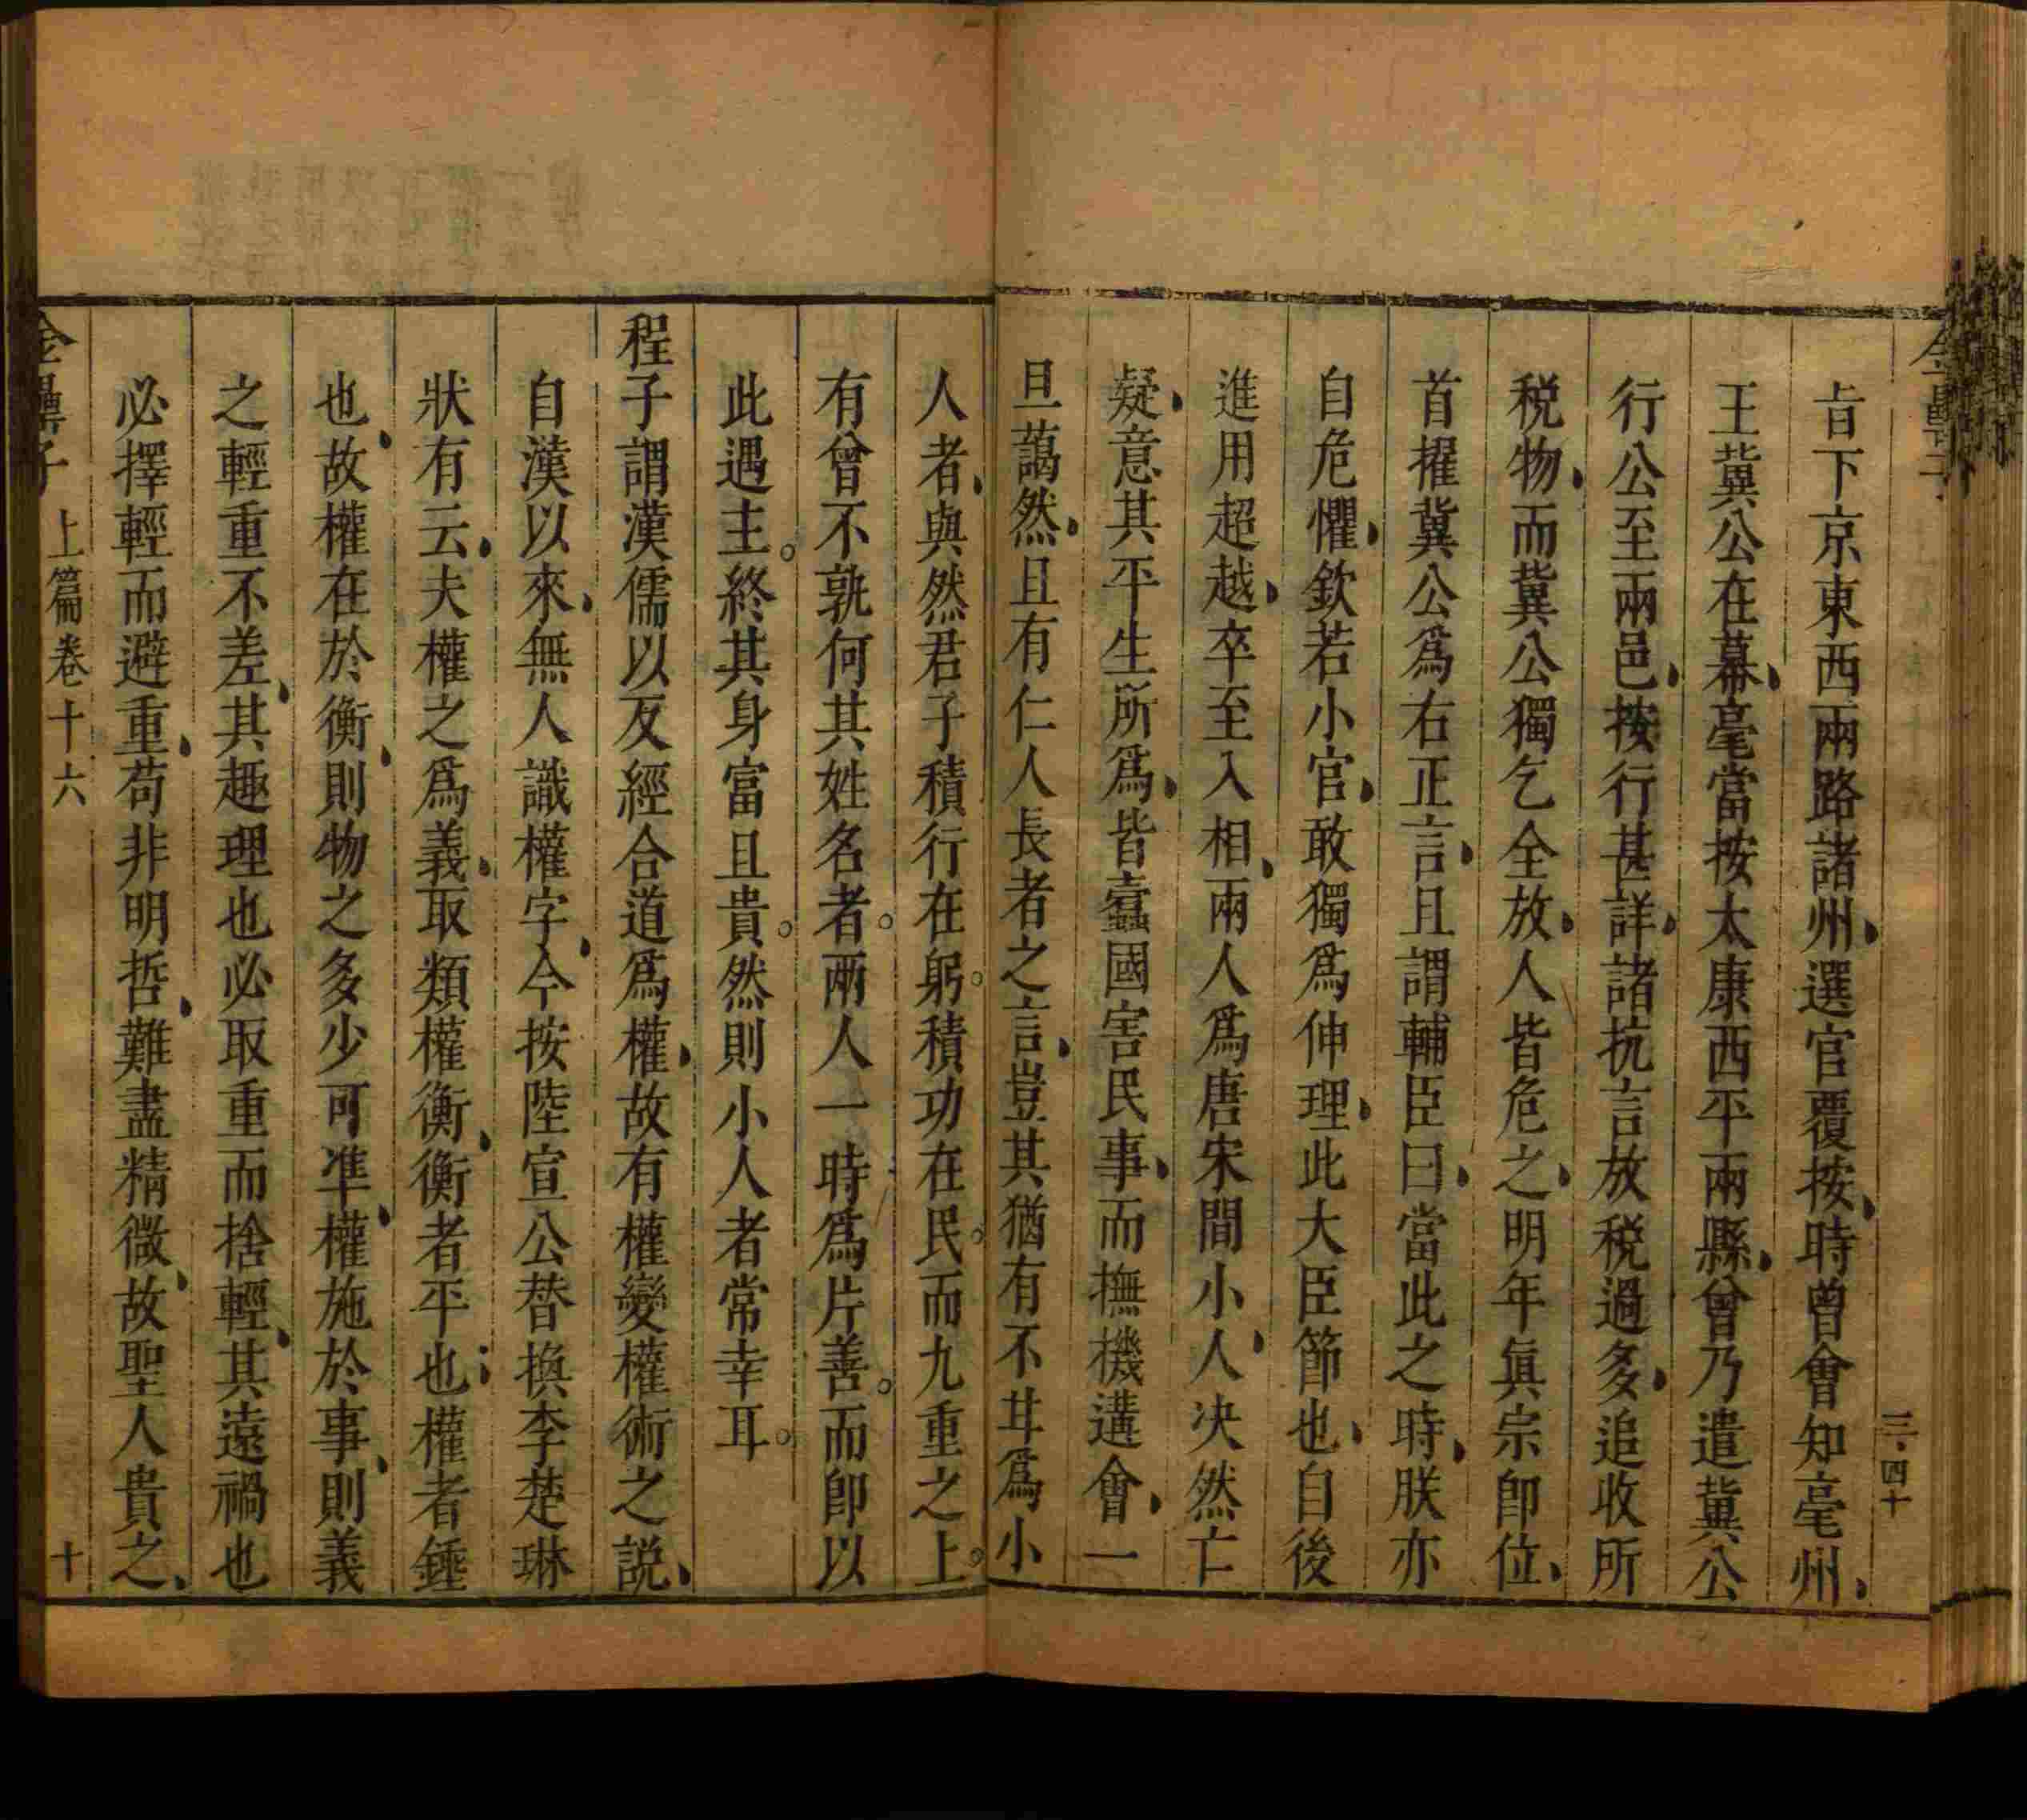 三・四十
旨下京東西兩路諸州選官覆按時曾會知亳州
王冀公在幕亳當按太康西平兩縣曾乃遣冀公
行公至兩邑按行甚詳諸抗言放税過多追收所
税物而冀公獨乞全放人皆危之明年眞宗卽位
首擢冀公爲右正言且謂輔臣曰當此之時朕亦
自危懼欽若小官敢獨爲伸理此大臣節也自後
進用超越卒至入相兩人爲唐宋間小人决然亡
疑意其平生所爲皆蠹國害民事而撫機遘會一
旦藹然且有仁人長者之言豈其猶有不甘爲小
人者與然君子積行在躬積功在民而九重之上
有曾不孰何其姓名者兩人一時爲片善而卽以
此遇主終其身富且貴然則小人者常幸耳
程子謂漢儒以反經合道爲權故有權變權術之説
自漢以來無人識權字今按陸宣公替換李楚琳
狀有云夫權之爲義取類權衡衡者平也權者錘
也故權在於衡則物之多少可準權施於事則義
之輕重不差其趣理也必取重而捨輕其遠禍也
必擇輕而避重苟非明哲難盡精微故聖人貴之
金罍子 上篇卷十六 十